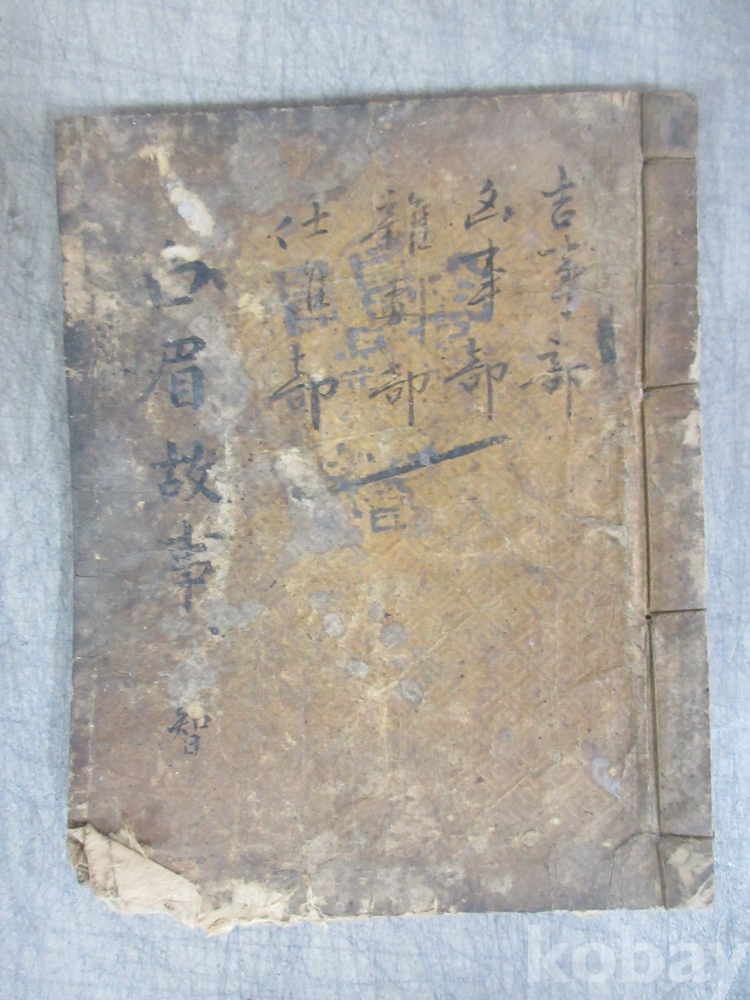 吉事部
凶事部
雜部
仕進部
白眉故事
智
kobay